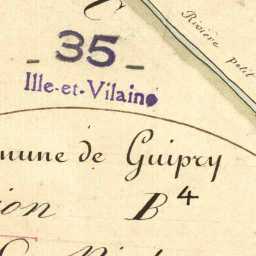 C
Rivière petit
- 35 -
Ille-et-Vilaine
mune de Guipry
ion B4